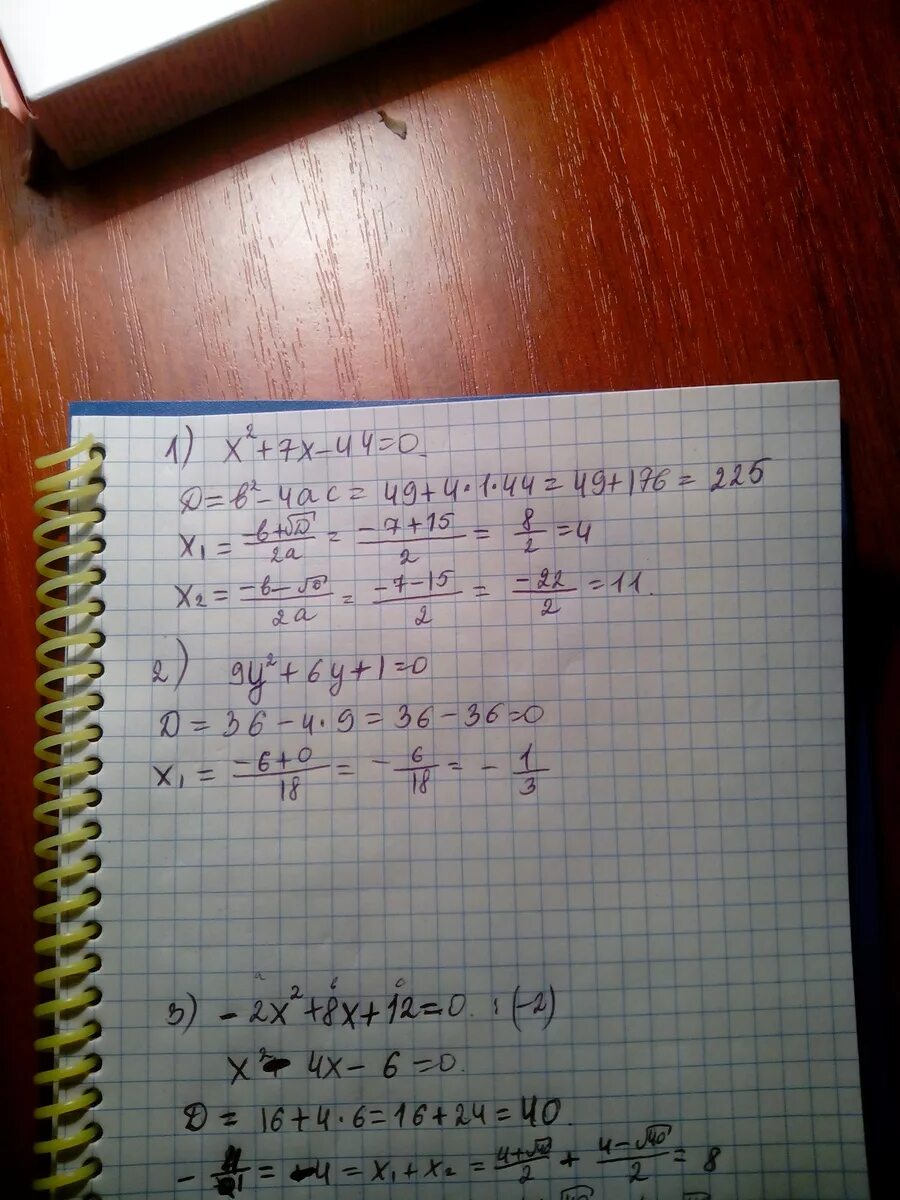 1) x²+7x-44=0.
D=b²-4ac=49+4·1·44=49+176=225
x₁=(-b+√D)/2a=(-7+15)/2=8/2=4
x₂=(-b-√D)/2a=(-7-15)/2=-22/2=11.
2) 9y²+6y+1=0
D=36-4·9=36-36=0
x₁=(-6+0)/18=-6/18=-1/3
a b c
3) -2x²+8x+12=0. :(-2)
x²-4x-6=0.
D=16+4·6=16+24=40.
=-4=x₁+x₂=(4+√40)/2+(4-√40)/2=8